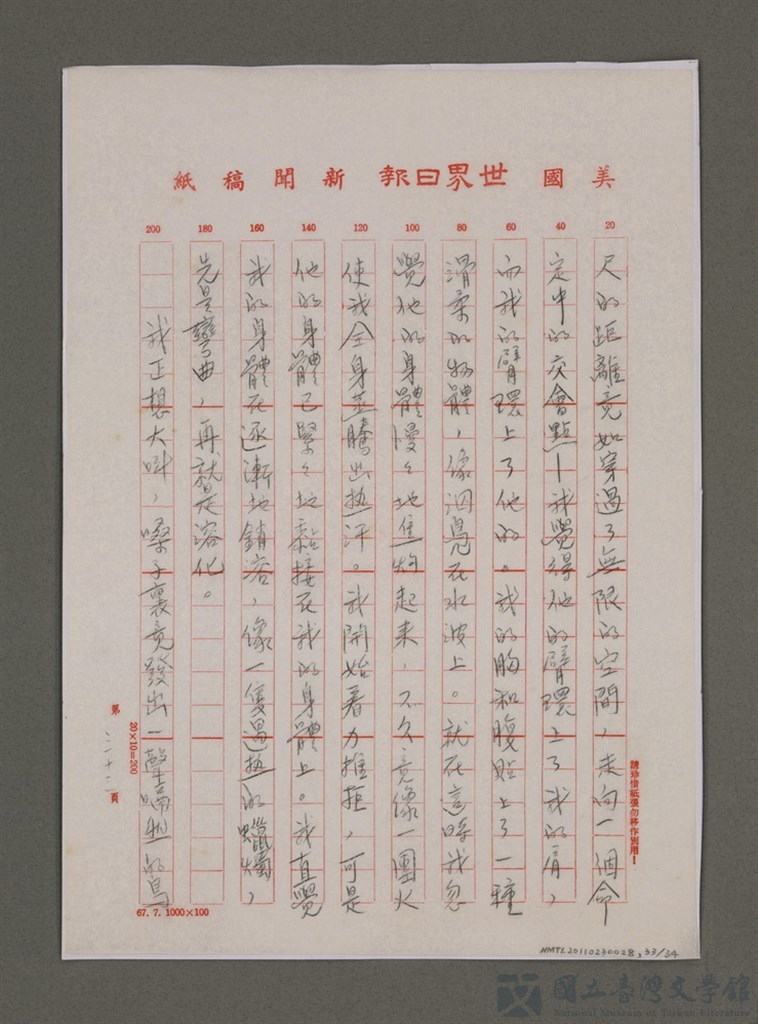 美國世界日報新聞稿紙
20 40 60 80 100 120 140 160 180 200
尺的距離竟如穿過了無限的空間，走向一個命
定中的交會點—我覺得他的臂環上了我的肩，
而我的臂環上了他的。我的胸和腹貼上了一種
滑柔的物體，像泅鳧在水波上。就在這時我忽
覺他的身體慢々地焦灼起來，不久竟像一團火
使我全身蒸騰出熱汗。我開始着力推拒，可是
他的身體已緊々地黏接在我的身體上。我直覺
我的身體在逐漸地銷溶，像一隻過熱的蠟燭，
先是彎曲，再就是溶化。
我正想大叫，嗓子裏竟發出一聲嘶啞的鳥
請珍惜紙張勿移作別用！
20×10=200
第三十三頁
67. 7. 1000×100
NMTL20110230028, 33/34
國立臺灣文學館
National Museum of Taiwan Literature